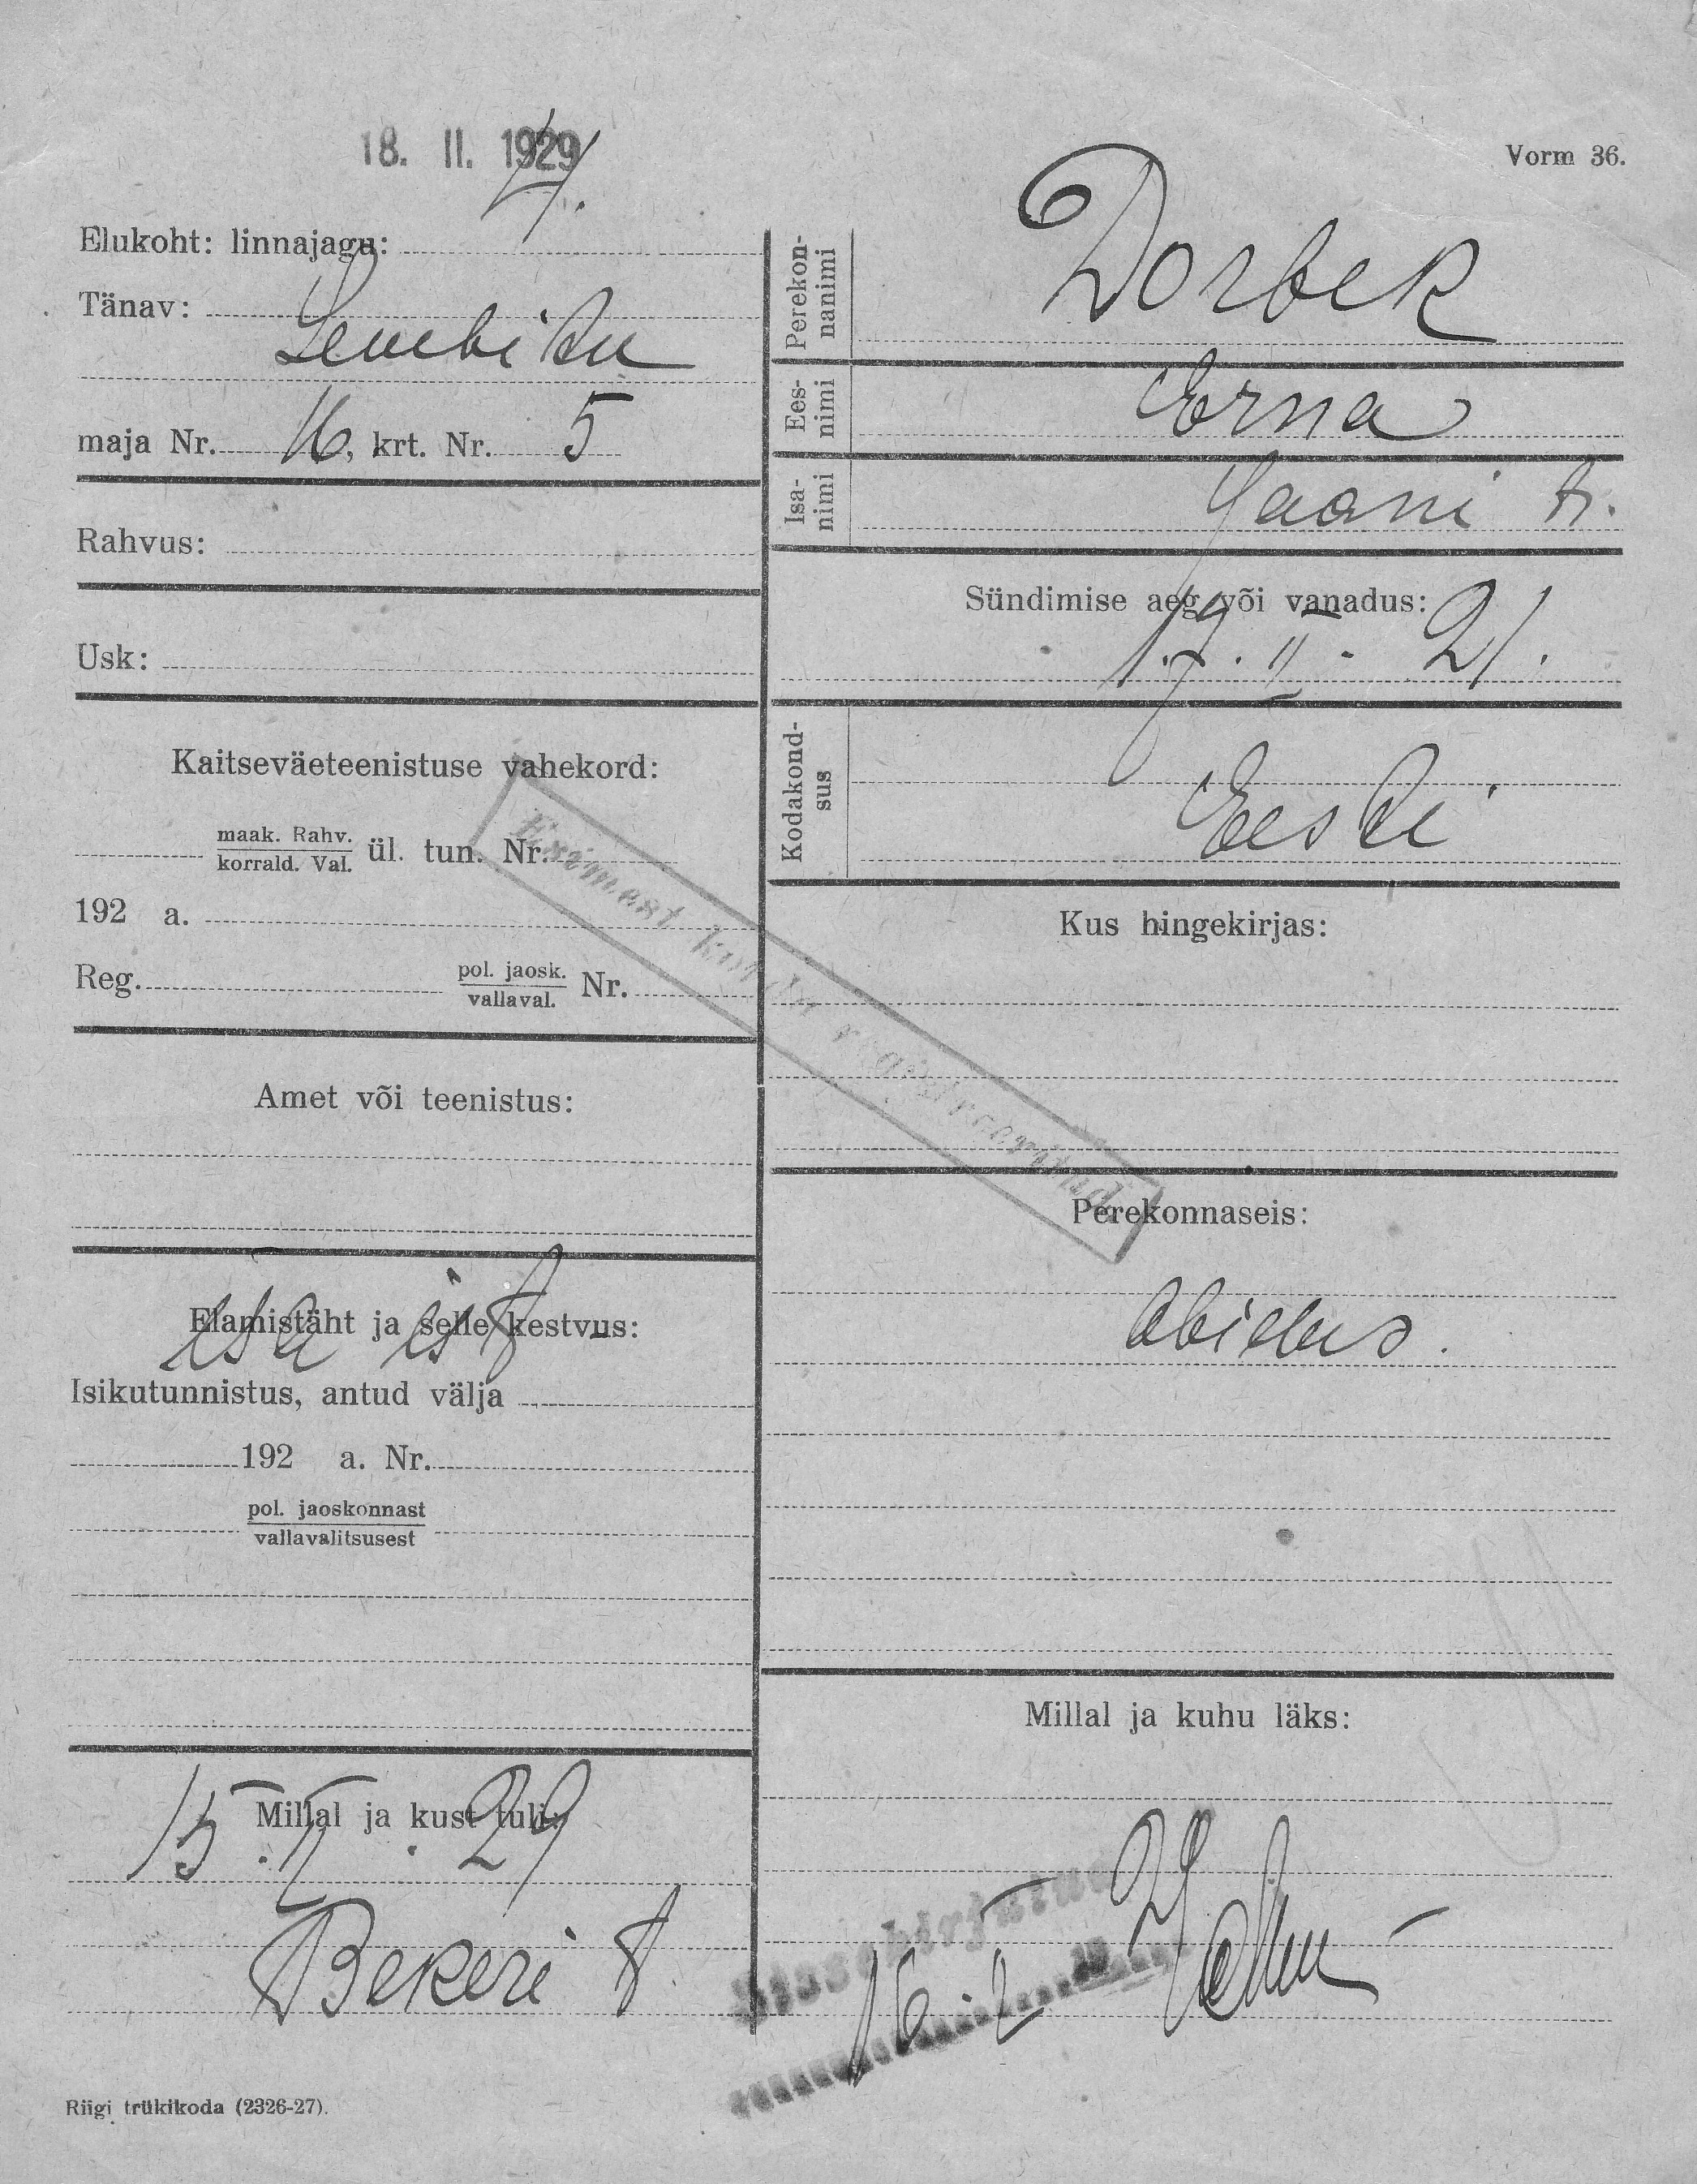 18. II. 1929
Vorm 36.
Elukoht: linnajagu:
Tänav:
Lembitu
maja Nr. 16, krt. Nr. 5
Rahvus:
Usk:
Kaitseväeteenistuse vahekord:
maak. Rahv.
korrald. Val. ül. tun. Nr.
192 a.
Reg. pol. jaosk.
vallaval. Nr.
Amet või teenistus:
Elamistäht ja selle kestvus:
isa
Isikutunnistus, antud välja
192 a. Nr.
pol. jaoskonnast
vallavalitsusest
Millal ja kust tuli:
15. II. 29
Bekeri t.
Perekon-
nanimi
Dorbek
Ees-
nimi
Erna
Isa-
nimi
Jaani t.
Sündimise aeg või vanadus:
17. II. 21.
Kodakond-
sus
Eesti
Kus hingekirjas:
Esimest korda registreeritud
Perekonnaseis:
Millal ja kuhu läks:
Sissekirjutud
16. II
Riigi trükikoda (2326-27).